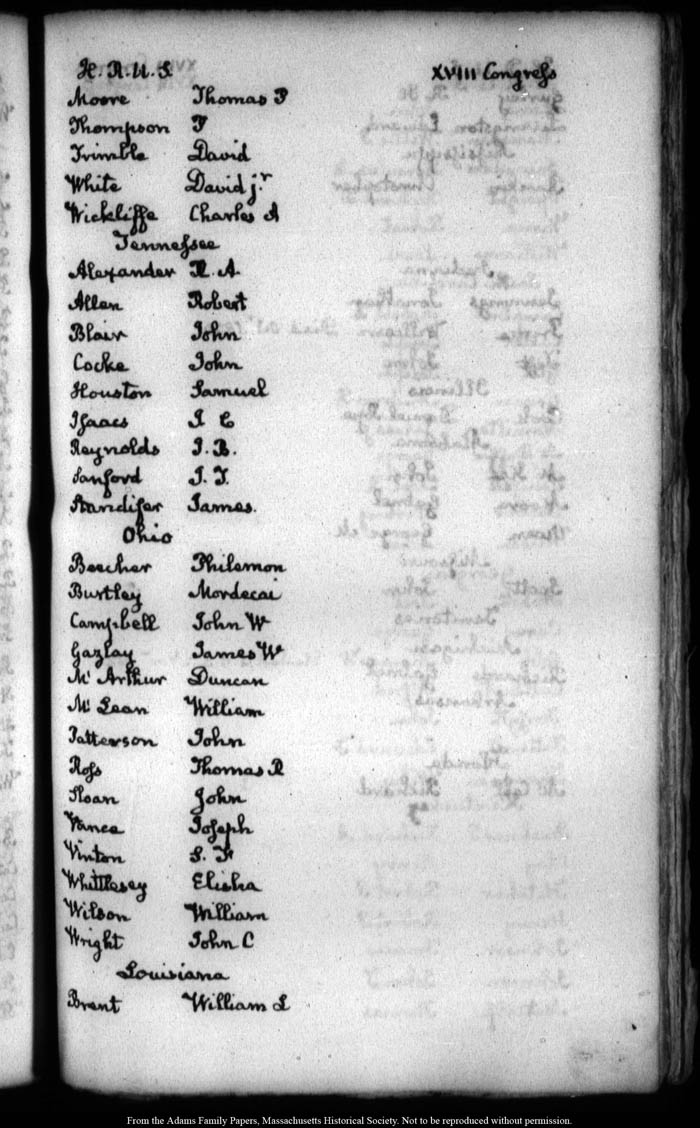 H. R. U. S. XVIII Congress
Moore Thomas P
Thompson P
Trimble David
White David jr
Wickliffe Charles A
Tennessee
Alexander A. A.
Allen Robert
Blair John
Cocke John
Houston Samuel
Isaacs J C
Reynolds J. B.
Sanford J. T.
Standifer James.
Ohio
Beecher Philemon
Bartley Mordecai
Campbell John W
Gazlay James W
Mc Arthur Duncan
Mc Lean William
Patterson John
Ross Thomas R
Sloan John
Vance Joseph
Vinton S. F
Whittlesey Elisha
Wilson William
Wright John C
Louisiana
Brent William L
From the Adams Family Papers, Massachusetts Historical Society. Not to be reproduced without permission.